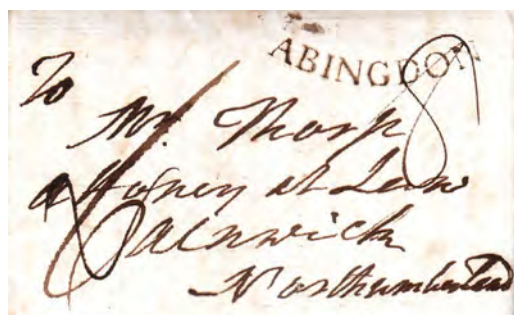 ABINGDON
To
Mr. Thorp
attorney at Law
Alnwick
Northumberland